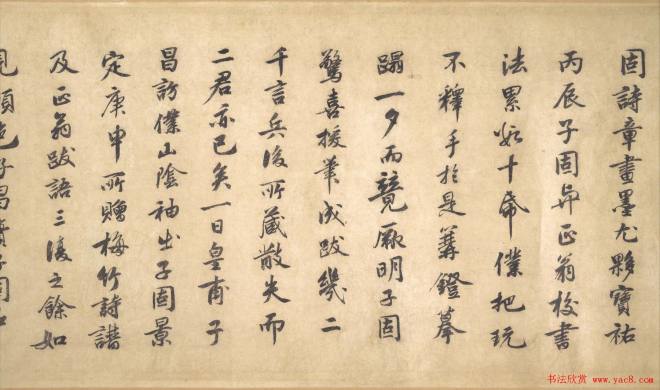 固詩章畫墨尤夥寶祐
丙辰子固與正翁校書
法累數十帋僕把玩
不釋手於是篝鐙摹
蹋一夕而竟厥明子固
驚喜援筆成跋幾二
千言兵後所藏散失而
二君亦已矣一日皇甫子
昌訪僕山陰袖出子固景
定庚申所贈梅竹詩譜
及正翁跋語三復之餘如
見顏色子昌寶子固如
书法欣赏 www.yac8.com